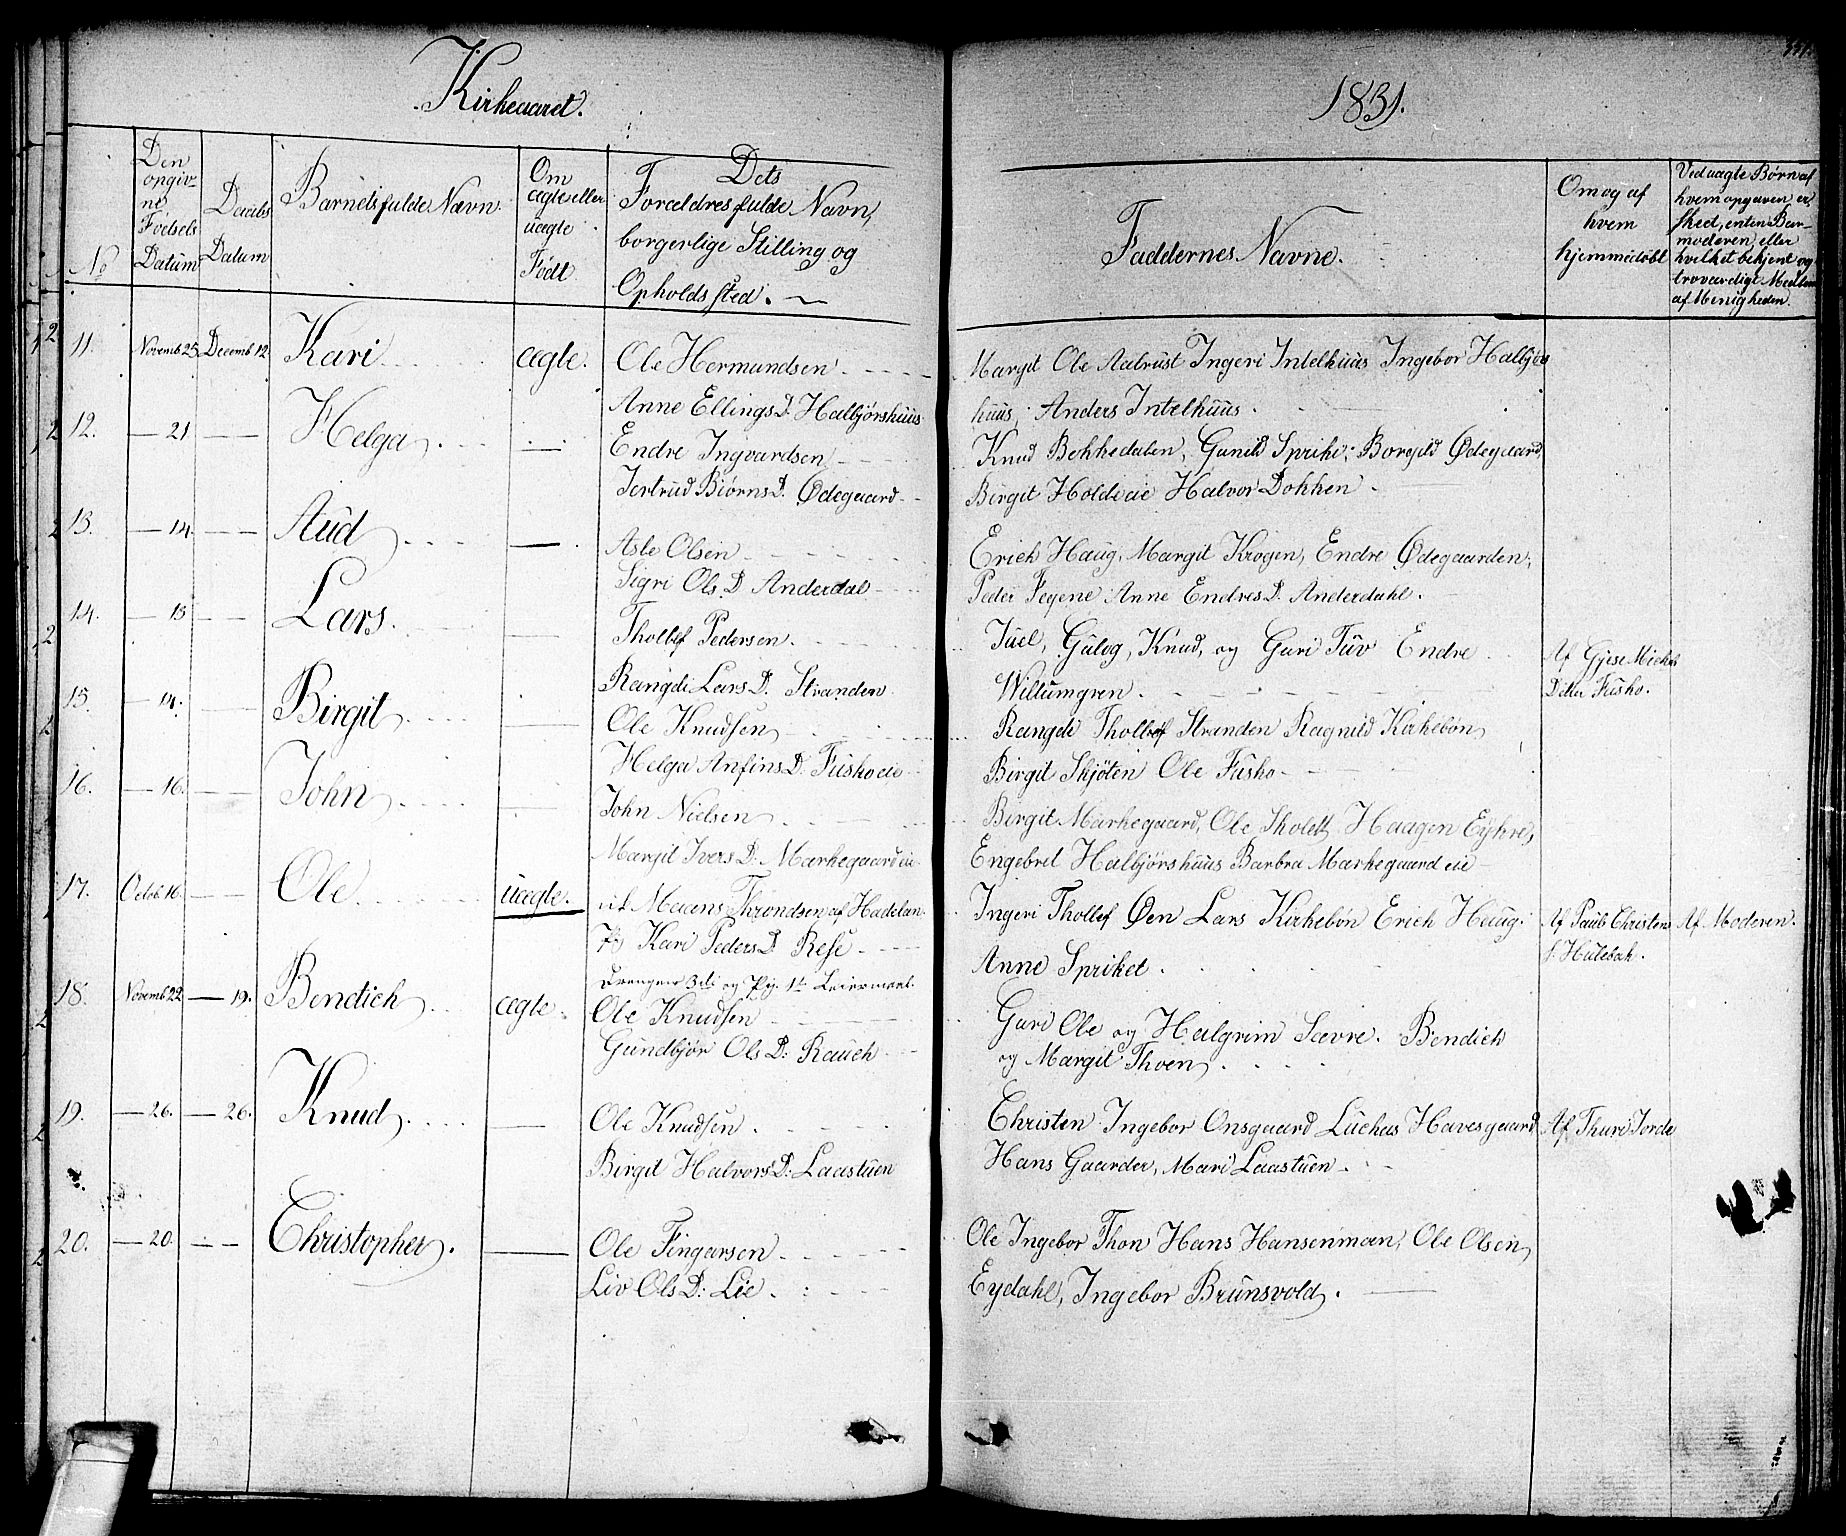 Kirkeaaret.
1831.
No
Den opgivne Födsels Datum
Daabs Datum
Barnets fulde Navn
Om ægte eller uægte Födt.
Dets Forældres fulde Navn, borgerlige Stilling og Opholds sted.
Faddernes Navne.
Om og af hvem hjemmedöbt
Ved uægte Börn af hvem opgaven er skeet, enten Barmoderen, eller hvilket bekjent og troværdigt Medlem af Menigheden.
11. Novemb 25. Decemb 12. Kari ægte. Ole Hermundsen Margit Ole Aalrust Ingeri Intelhuus Ingebor Halbjørs
Anne Ellings D. Halbjørshuus huus, Anders Intelhuus.
12. — 21 — — Helga — Endre Ingvardsen Knud Bekkedalen, Gunild Spriki; Borgild Ødegaard
Jertrud Biørns D. Ødegaard Birgit Holdeeie Halvor Dokken
13. — 14. — — Aud — Asle Olsen Erich Haug, Margit Krogen, Endre Ødegaarden,
Sigri Ols. D Anderdal Peder Fegene Anne Endres D. Anderdahl.
14. — 15 — — Lars. — Tholbef Pedersen. Juel, Gulog, Knud, og Guri Tuv Endre Af Gjese Michels
Rangdi Lars D. Stranden Wiltumgren. Dtter Fusko.
15. — 14. — Birgit — Ole Knudsen Rangdi Tholbef Stranden Ragnild Kirkebøn
Helga Anfins D. Fuskoeie Birgit Skjøten Ole Fusko
16. — 16. — — John — John Nielsen Birgit Markegaard, Ole Tholeft Haagen Eykre,
Margit Ivers D. Markegaard eie Engebret Halbjørshuus Barbra Markegaard eie
17. Octob. 16. — — Ole uægte. Maans Throndsen af Hadelan Ingeri Thollef Øen Lars Kirkebøn Erich Haug. Af Paul Christens Af Moderen.
Kari Peders D. Rese Anne Spriket. S. Hulebak.
Drengens 3die og Pig. 1te Leiermaal.
18. Novemb 22 — 19. Bendich ægte. Ole Knudsen Guri Ole og Halgrim Sævre. Bendich
Gundbjør Ols D: Rauch og Margit Thoen
19. — 26. — 26. Knud — Ole Knudsen. Christen Ingebor Onsgaard Luchas Havesgaard Af Thuri Jorde
Birgit Halvors D: Laastuen Hans Gaarder, Mari Laastuen
20. — 20. — — Christopher. — Ole Fingarsen Ole Ingebor Thon Hans Hansenmoen, Ole Olsen
Liv Ols D: Lie. Eydahl, Ingebor Brunsvold.